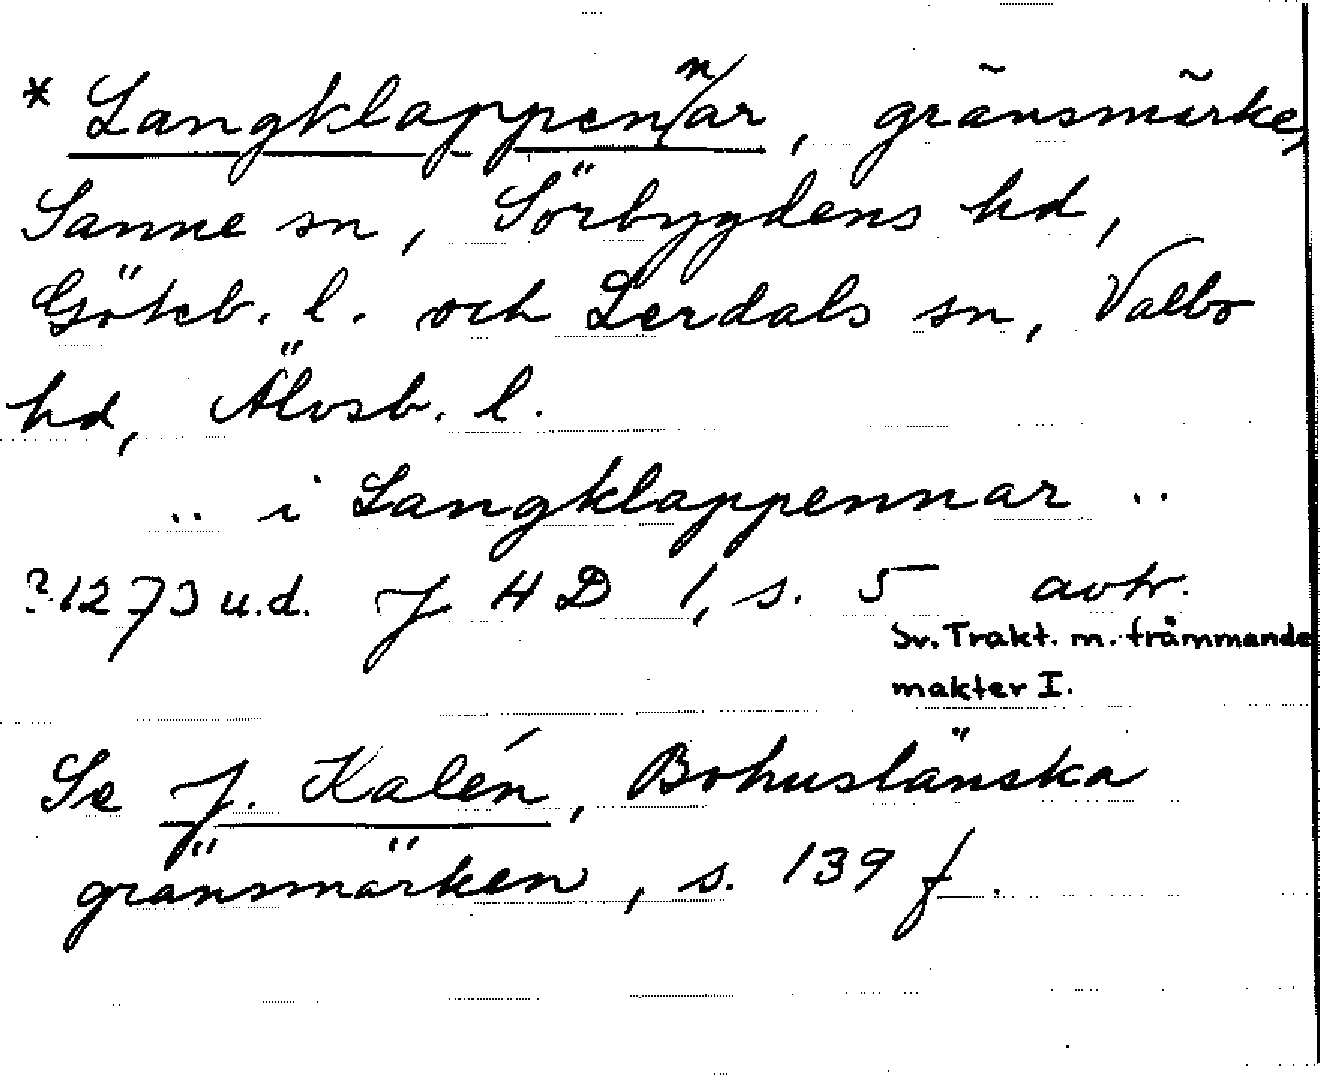 * Langklappennar, gränsmärke,
Sanne sn, Sörbygdens hd,
Göteb. l. och Lerdals sn, Valbo
hd, Älvsb. l.
.. i Langklappennar ..
?1273 u.d. J H D 1, s. 5 avtr.
Sv. Trakt. m. främmande
makter I.
Se J. Kalén, Bohuslänska
gränsmärken, s. 139 f.